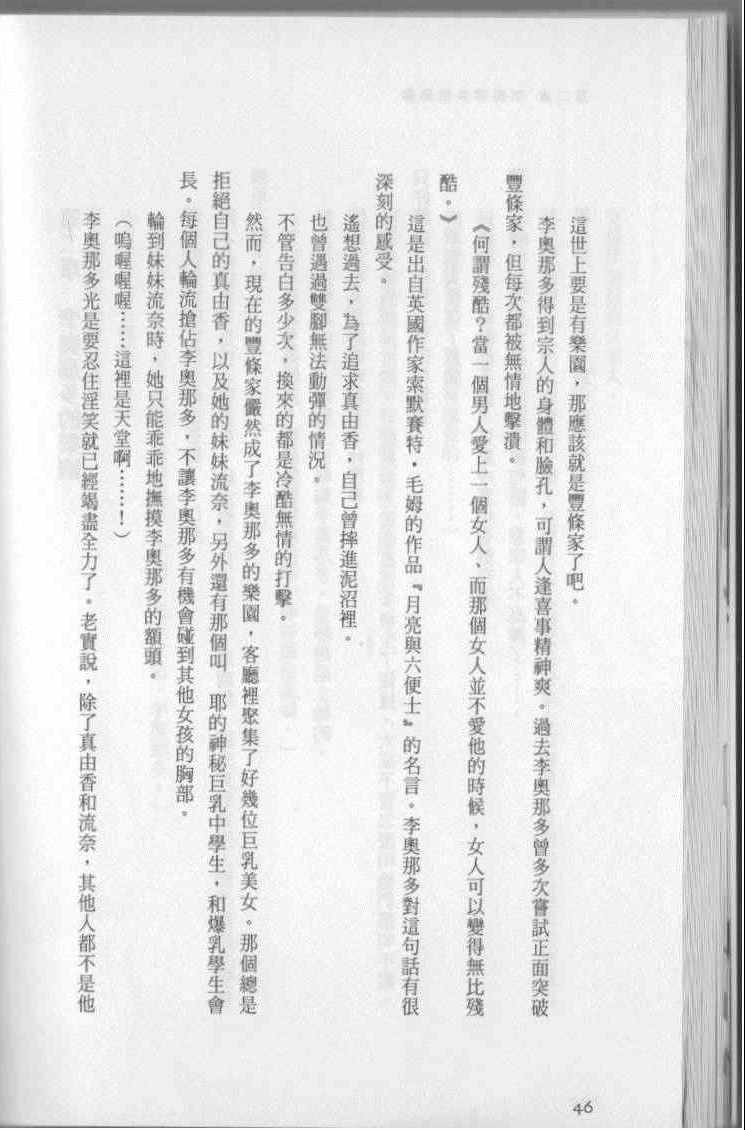 這世上要是有樂園，那應該就是豐條家了吧。
李奧那多得到宗人的身體和臉孔，可謂人逢喜事精神爽。過去李奧那多曾多次嘗試正面突破
豐條家，但每次都被無情地擊潰。
《何謂殘酷？當一個男人愛上一個女人、而那個女人並不愛他的時候，女人可以變得無比殘
酷。》
這是出自英國作家索默賽特，毛姆的作品『月亮與六便士』的名言。李奧那多對這句話有很
深刻的感受。
遙想過去，為了追求真由香，自己曾摔進泥沼裡。
也曾遇過雙腳無法動彈的情況。
不管告白多少次，換來的都是冷酷無情的打擊。
然而，現在的豐條家儼然成了李奧那多的樂園，客廳裡聚集了好幾位巨乳美女。那個總是
拒絕自己的真由香，以及她的妹妹流奈，另外還有那個叫 耶的神秘巨乳中學生，和爆乳學生會
長。每個人輪流搶佔李奧那多，不讓李奧那多有機會碰到其他女孩的胸部。
輪到妹妹流奈時，她只能乖乖地撫摸李奧那多的額頭。
（嗚喔喔喔……這裡是天堂啊……！）
李奧那多光是要忍住淫笑就已經竭盡全力了。老實說，除了真由香和流奈，其他人都不是他
46